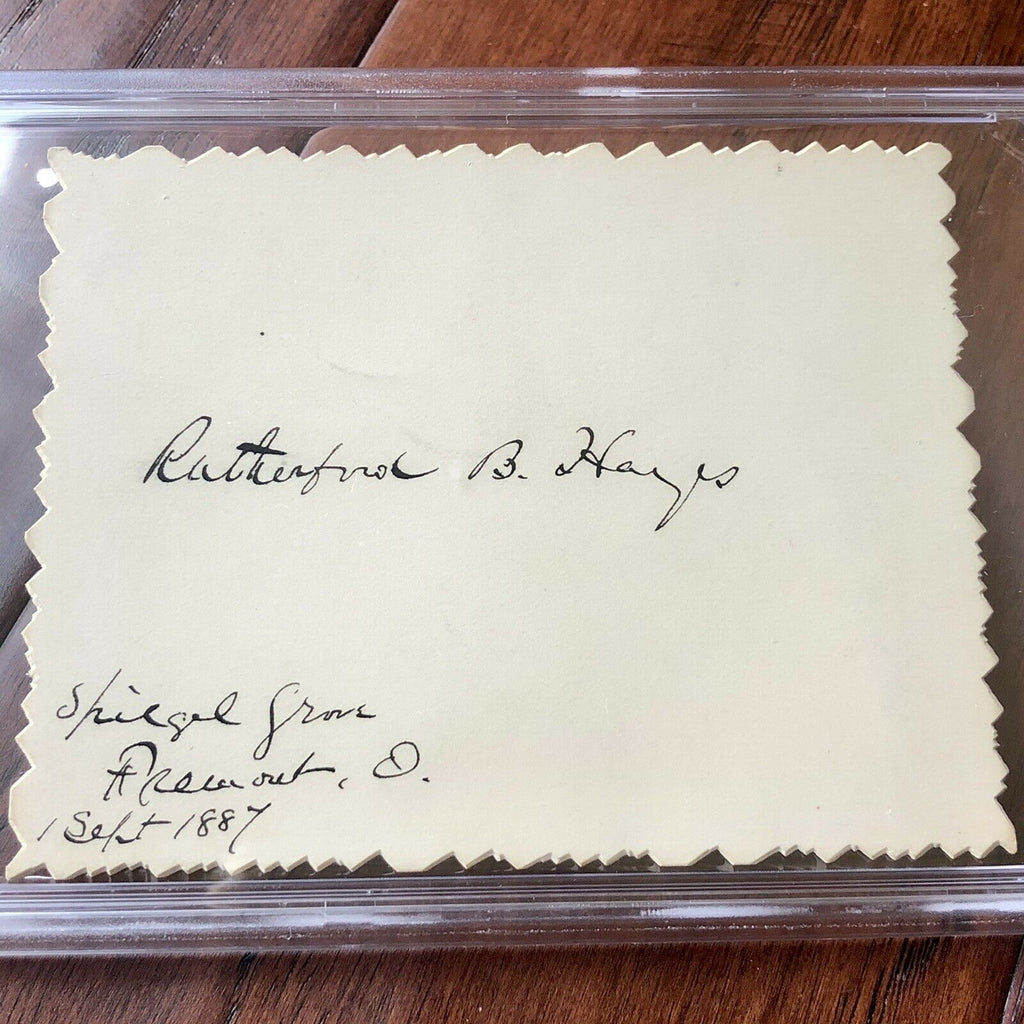 Rutherford B. Hayes
Spiegel Grove
Fremont, O.
1 Sept 1887